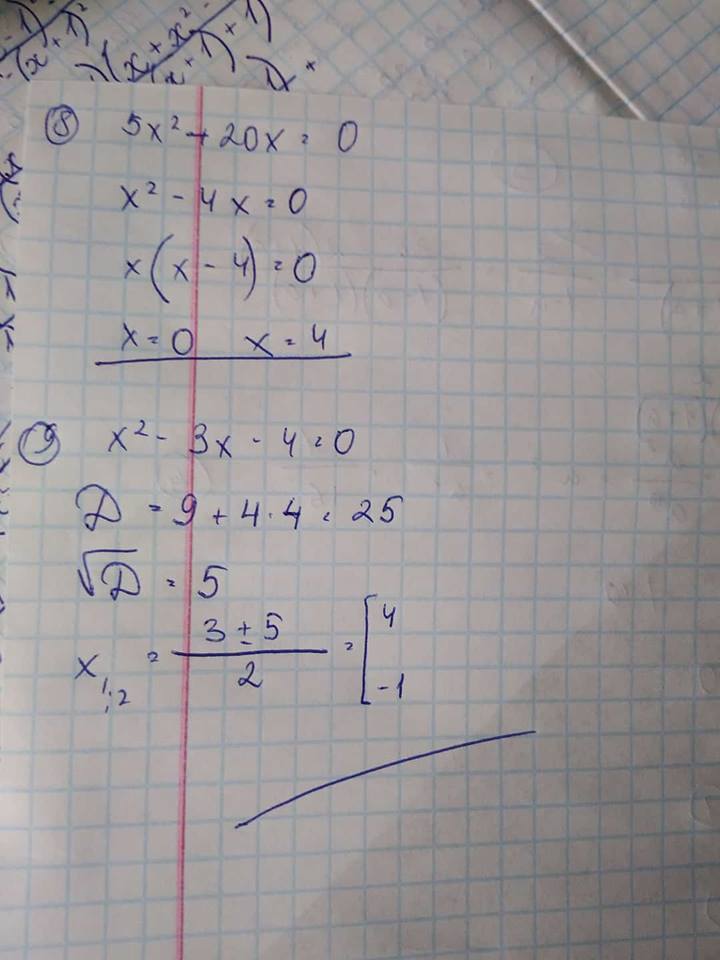 ⑧ 5x² + 20x = 0
x² - 4x = 0
x(x - 4) = 0
x = 0 x = 4
⑨ x² - 3x - 4 = 0
D = 9 + 4·4 = 25
√D = 5
x₁;₂ = (3 ± 5)/2 = [4
-1